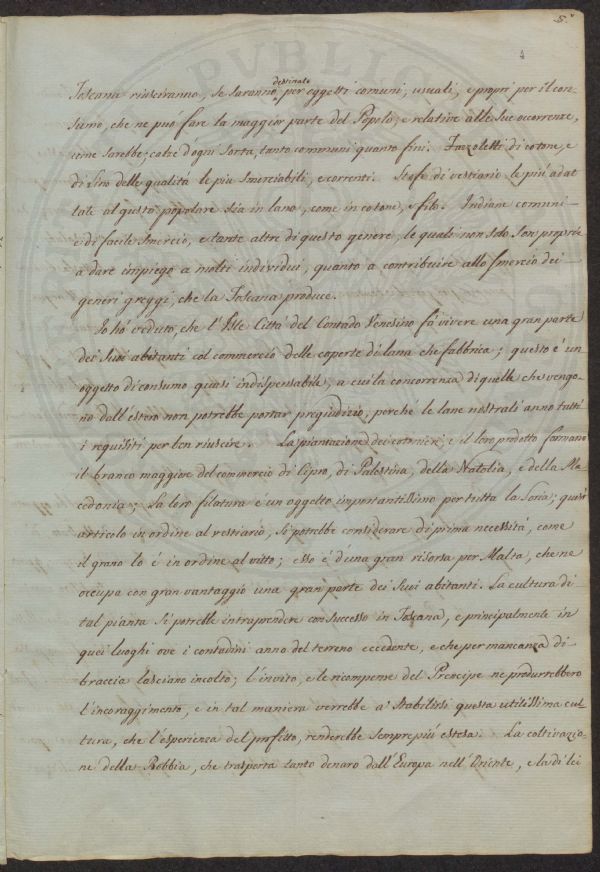 5.
4
destinate
Toscana riusciranno, se saranno per oggetti comuni, usuali, e propri per il con-
sumo, che ne può fare la maggior parte del Popolo, e relative alle sue occorrenze,
come sarebbe; calze d'ogni sorta, tanto communi quanto fini. Fazzoletti di cotone, e
di lino delle qualità le più smerciabili, e correnti. Stofe di vestiario le più adat
tate al gusto popolare sia in lana, come in cotone, e filo. Indiane comuni-
e di facile smercio, e tante altre di questo genere, le quali non solo son proprie
a dare impiego a molti individui, quanto a contribuire allo smercio dei
generi greggi, che la Toscana produce.
Io hò veduto, che l'Isle Città del Contado Venesino fà vivere una gran parte
dei suoi abitanti col commercio delle coperte di lana che fabbrica; questo è un
oggetto di consumo quasi indispensabile, a cui la concorrenza di quelle che vengo-
no dall'estero non potrebbe portar pregiudizio, perché le lane nostrali anno tutti
i requisiti per ben riuscire. La piantazione dei cotonieri, e il loro prodotto formano
il branco maggiore del commercio di Cipro, di Palestina, della Natolia, e della Ma
cedonia; La loro filatura è un oggetto importantissimo per tutta la Soria; quest'
articolo in ordine al vestiario, si potrebbe considerare di prima necessità, come
il grano lo è in ordine al vitto; esso è d'una gran risorsa per Malta, che ne
occupa con gran vantaggio una gran parte dei suoi abitanti. La cultura di
tal pianta si potrebbe intraprendere con successo in Toscana, e principalmente in
quei luoghi ove i contadini anno del terreno eccedente, e che per mancanza di
braccia lasciano incolto; l'invito, e le ricompense del Prencipe ne produrrebbero
l'incoraggimento, e in tal maniera verrebbe a' stabilirsi questa utilissima cul
tura, che l'esperienza del profitto, renderebbe sempre più estesa. La coltivazio-
ne della Robbia, che trasporta tanto denaro dall'Europa nell'Oriente, e la di lei
PVBLIC